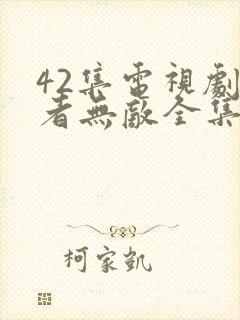 42集電視劇
者無敵全集
柯家凱